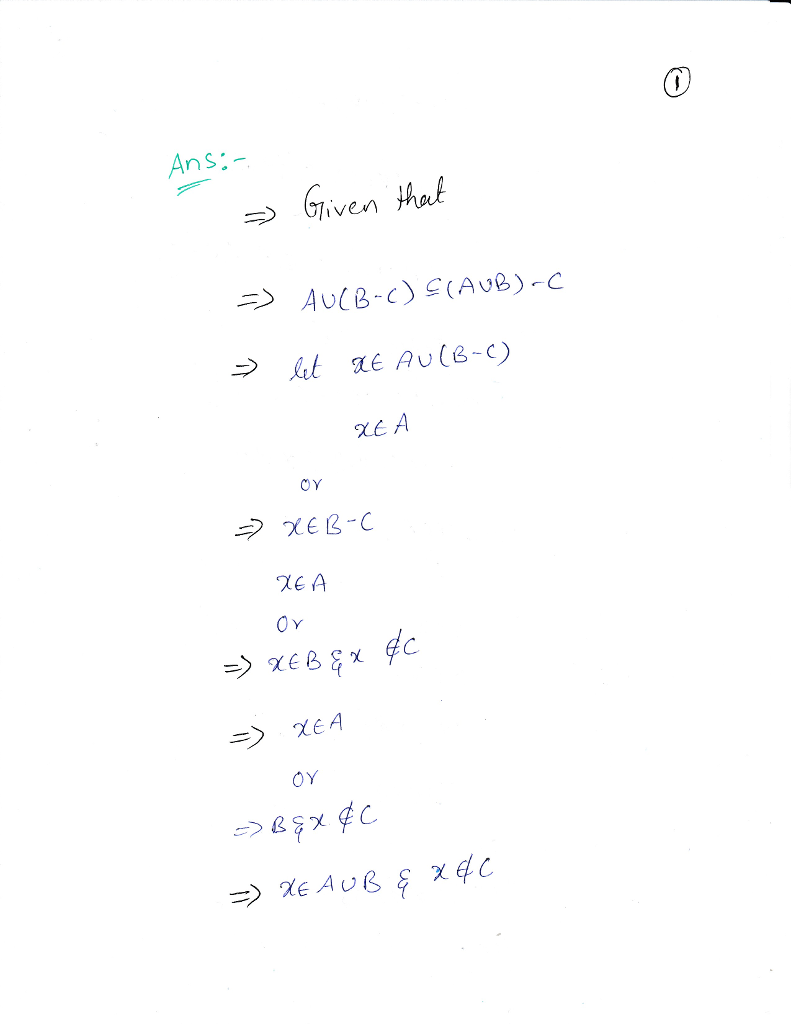 ①
Ans:-
⇒ Given that
⇒ AU(B-C) ⊆ (AUB)-C
⇒ let x∈ AU(B-C)
x∈A
or
⇒ x∈B-C
x∈A
Or
⇒ x∈B & x ∉C
⇒ x∈A
or
⇒ B & x ∉C
⇒ x∈ AUB & x∉C